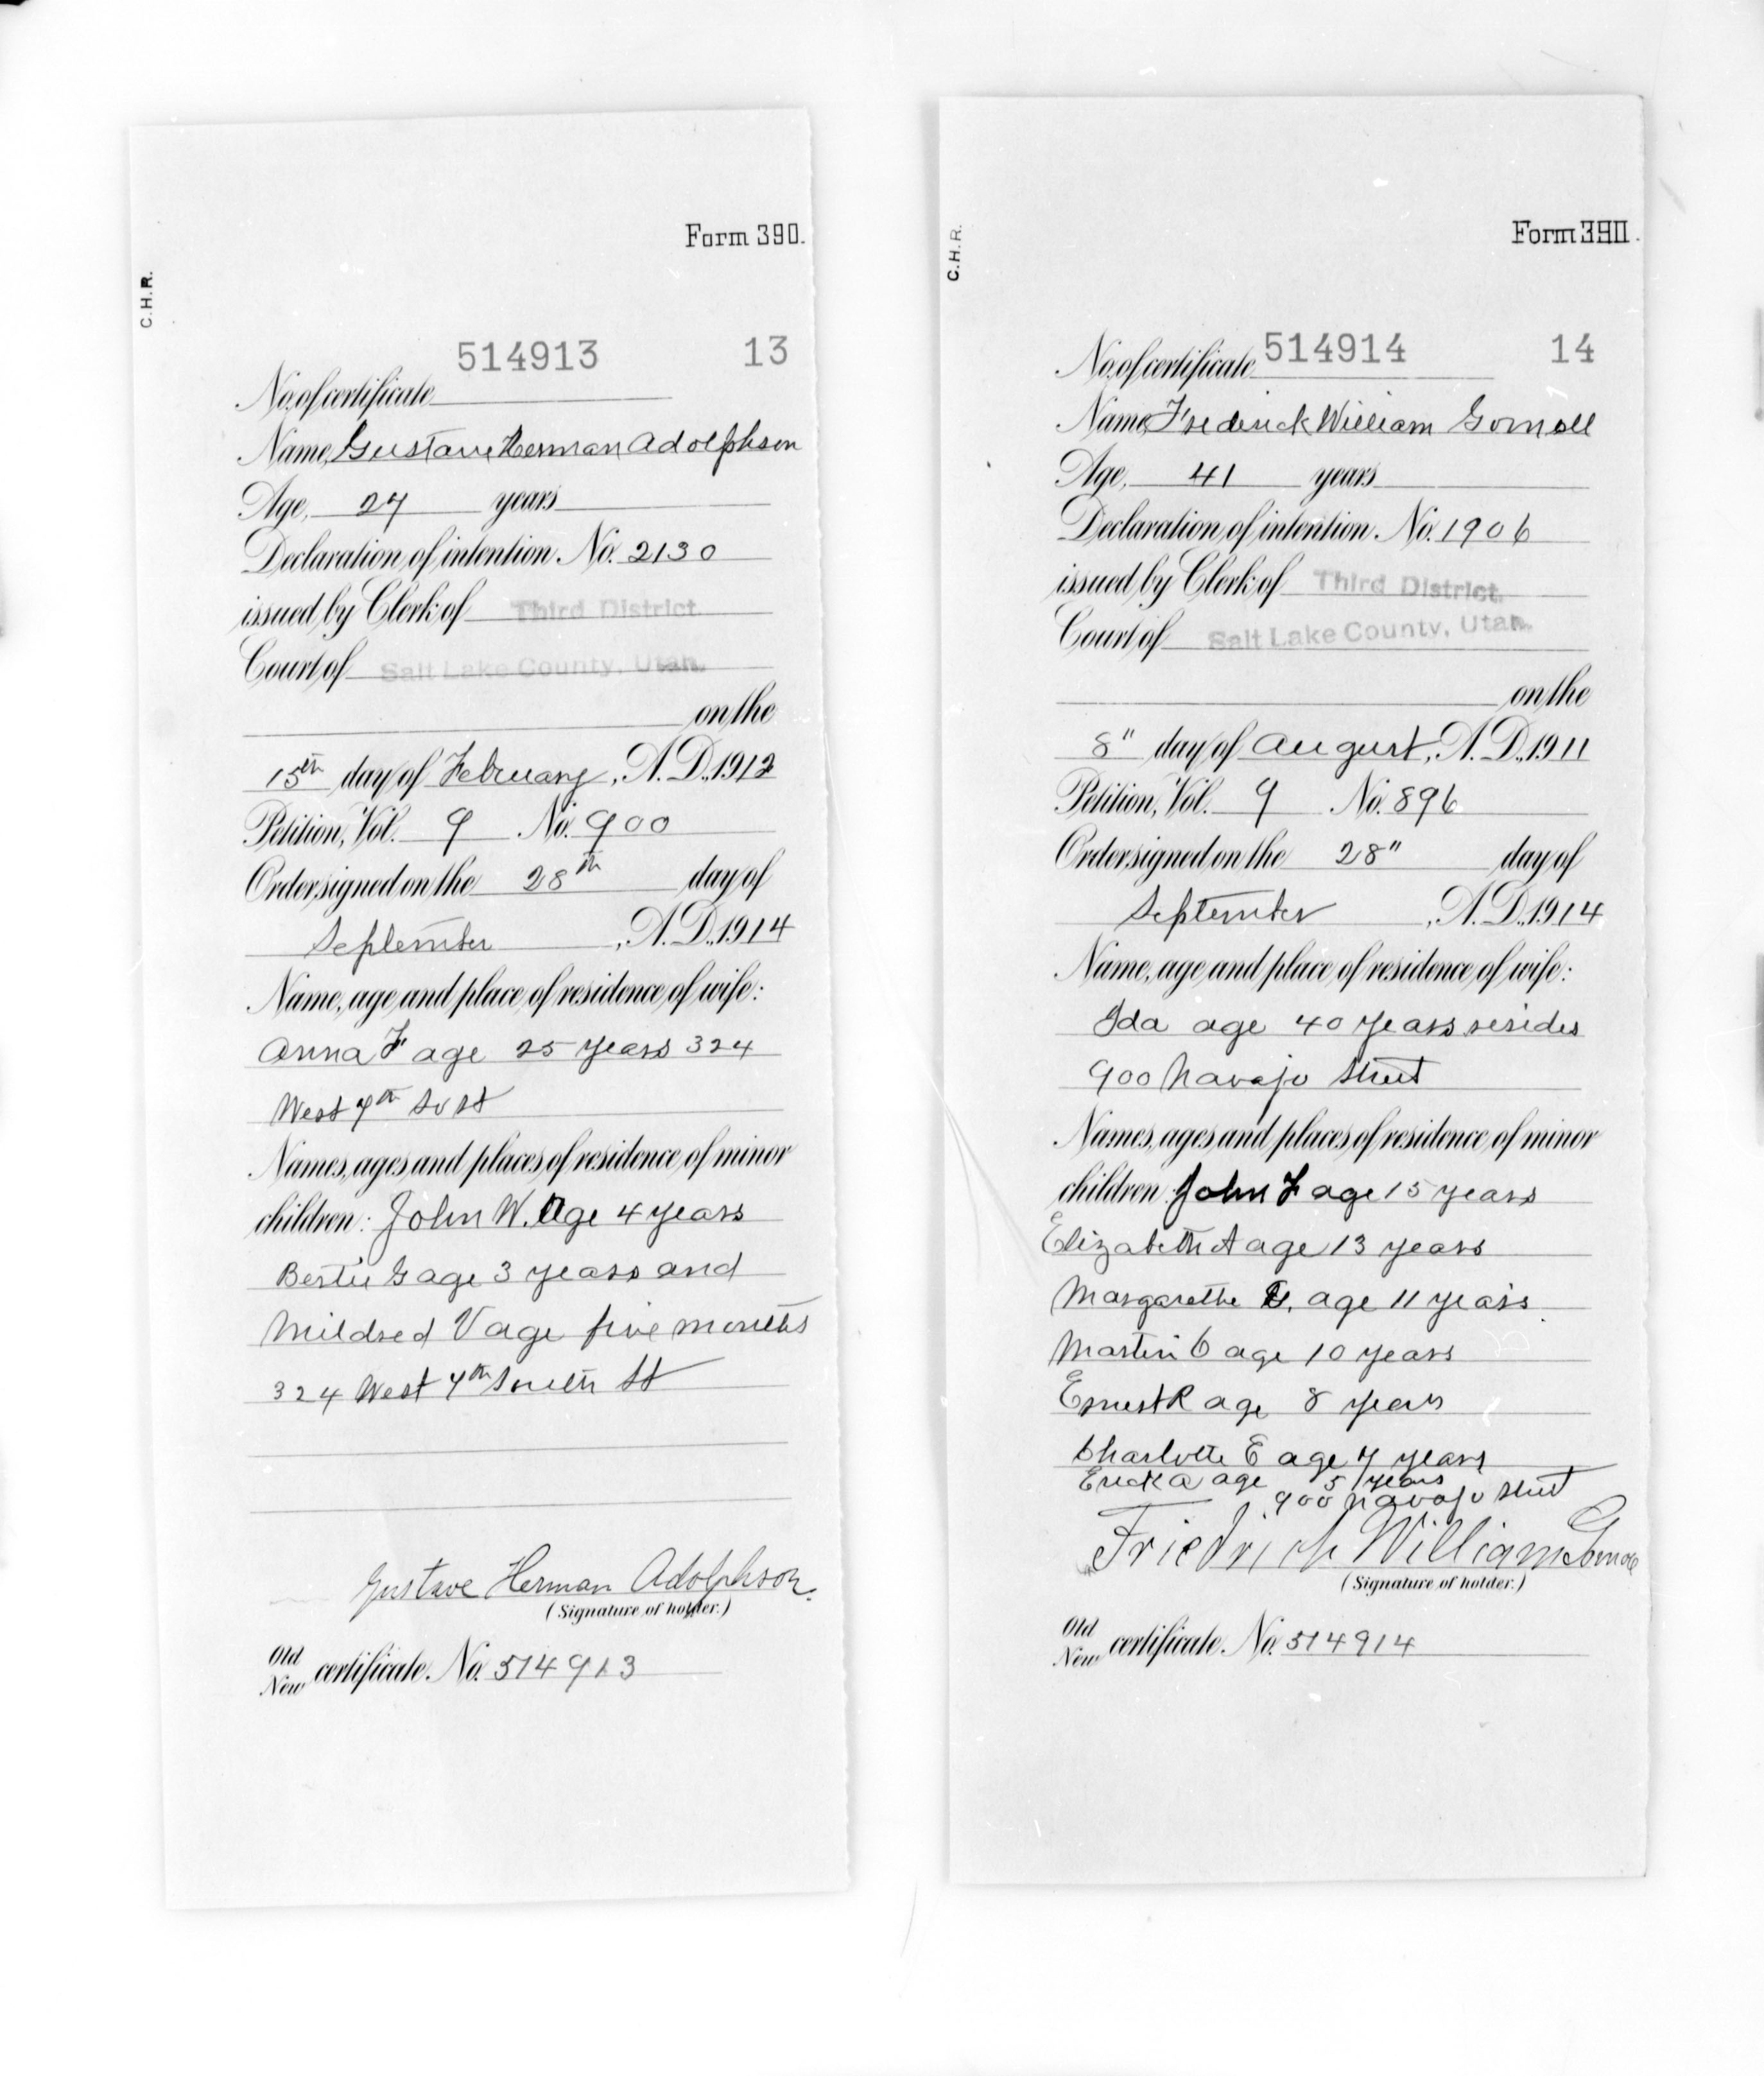 Form 390.
C.H.R.
514913 13
No. of certificate
Name, Gustave Herman Adolphson
Age, 27 years
Declaration of intention. No. 2130
issued by Clerk of Third District
Court of Salt Lake County, Utah.
on the
15th day of February, A.D., 1912
Petition, Vol. 9 No. 900
Order signed on the 28th day of
September, A.D., 1914
Name, age and place of residence of wife:
Anna F age 25 years 324
West 7th So St
Names, ages and places of residence of minor
children: John W. Age 4 years
Bertie G age 3 years and
Mildred V age five months
324 West 7th South St
Gustave Herman Adolphson.
(Signature of holder.)
Old
New certificate. No. 514913
Form 390.
C.H.R.
No. of certificate 514914 14
Name, Frederick William Gomoll
Age, 41 years
Declaration of intention. No. 1906
issued by Clerk of Third District
Court of Salt Lake County, Utah.
on the
8" day of August, A.D., 1911
Petition, Vol. 9 No. 896
Order signed on the 28" day of
September, A.D., 1914
Name, age and place of residence of wife:
Ida age 40 years resides
900 Navajo Street
Names, ages and places of residence of minor
children: John F age 15 years
Elizabeth A age 13 years
Margarethe age 11 years
Martin C age 10 years
Ernest R age 8 years
Charlotte E age 7 years
Erick A age 5 years
900 Navajo Street
Friedrich William
(Signature of holder.)
Old
New certificate. No. 514914